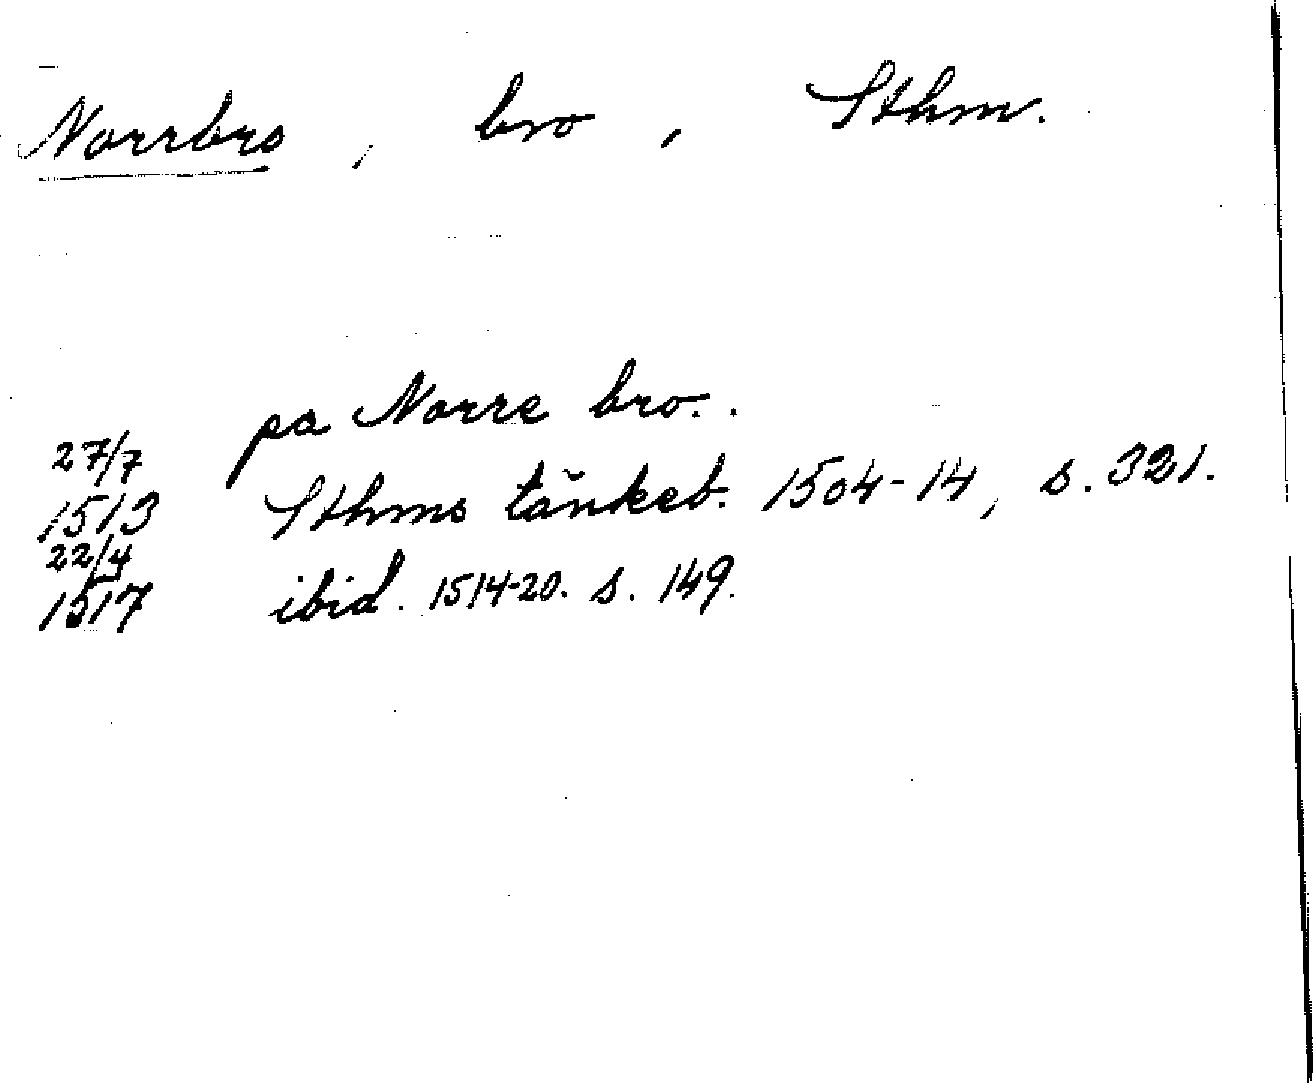 Norrbro, bro, Sthm.
pa Norre bro..
27/7
1513 Sthms tänkeb. 1504-14, s. 321.
22/4
1517 ibid. 1514-20. s. 149.